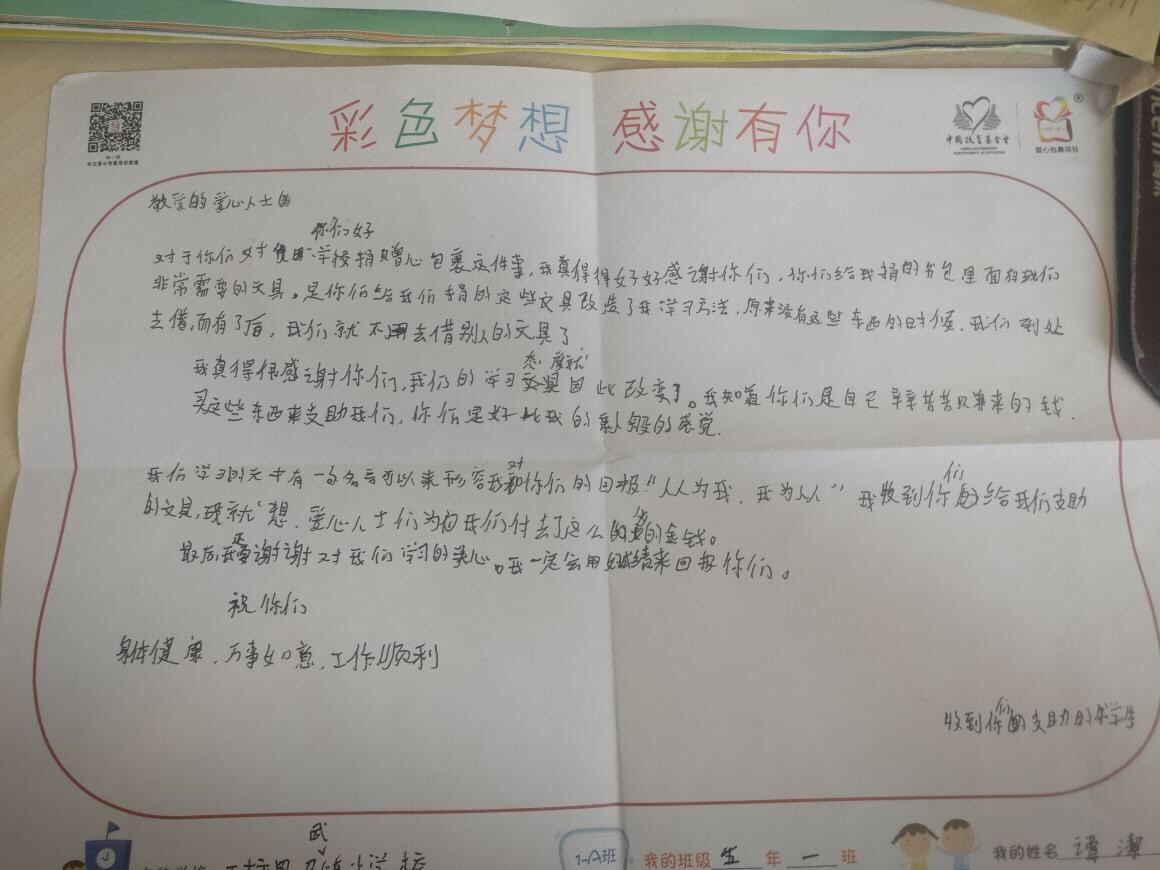 彩色梦想 感谢有你
中国扶贫基金会
CHINA FOUNDATION
FOR POVERTY ALLEVIATION
爱心包裹项目
扫一扫
敬爱的爱心人士
你们好
对于你们对学校捐赠心包裹这件事,我真得得好好感谢你们,你们给我捐的书包里面有我们
非常需要的文具。是你们给我们捐的这些文具改造了我学习方法,原来没有这些东西的时候,我们到处
去借,而有了后,我们就不用去借别人的文具了
我真得很感谢你们,我们的学习态度就因此改变了。我知道你们是自己辛辛苦苦赚来的钱.
买这些东西来支助我们,你们是好比我的亲人般的感觉.
我们学习的天中有一句名言可以来形容我对你们的回报“人人为我,我为人人”我收到你们给我们支助
的文具,我就想,爱心人士们为我们付去了这么的金钱。
最后我要谢谢对我们学习的关心。我一定会用成绩来回报你们。
祝你们
身体健康,万事如意,工作顺利
收到你们支助的学生
武
小学校
1-A班
我的班级 五 年 一 班
我的姓名 谭 洁